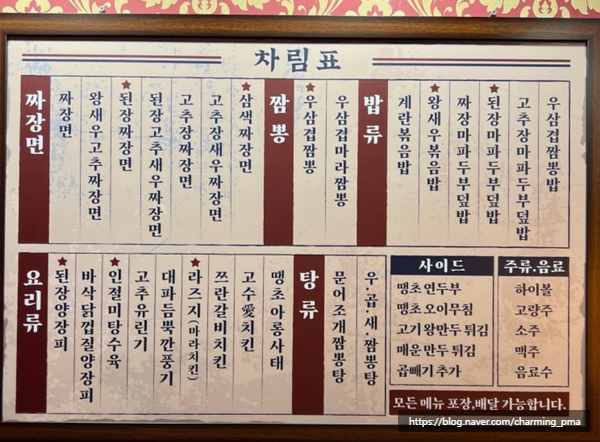 차림표
짜장면
짜장면
왕새우고추짜장면
된장짜장면
된장고추새우짜장면
고추장짜장면
고추장새우짜장면
삼색짜장면
짬뽕
우삼겹짬뽕
우삼겹마라짬뽕
밥류
계란볶음밥
왕새우볶음밥
짜장마파두부덮밥
된장마파두부덮밥
고추장마파두부덮밥
우삼겹짬뽕밥
요리류
된장양장피
바삭닭껍질양장피
인절미탕수육
고추유린기
대파듬뿍깐풍기
라즈지(마라치킨)
쯔란갈비치킨
고수愛치킨
땡초아롱사태
탕류
문어조개짬뽕탕
우·곱·새·짬뽕탕
사이드
땡초 연두부
땡초 오이무침
고기 왕만두 튀김
매운 만두 튀김
곱빼기 추가
주류,음료
하이볼
고량주
소주
맥주
음료수
모든 메뉴 포장,배달 가능합니다.
https://blog.naver.com/charming_pma